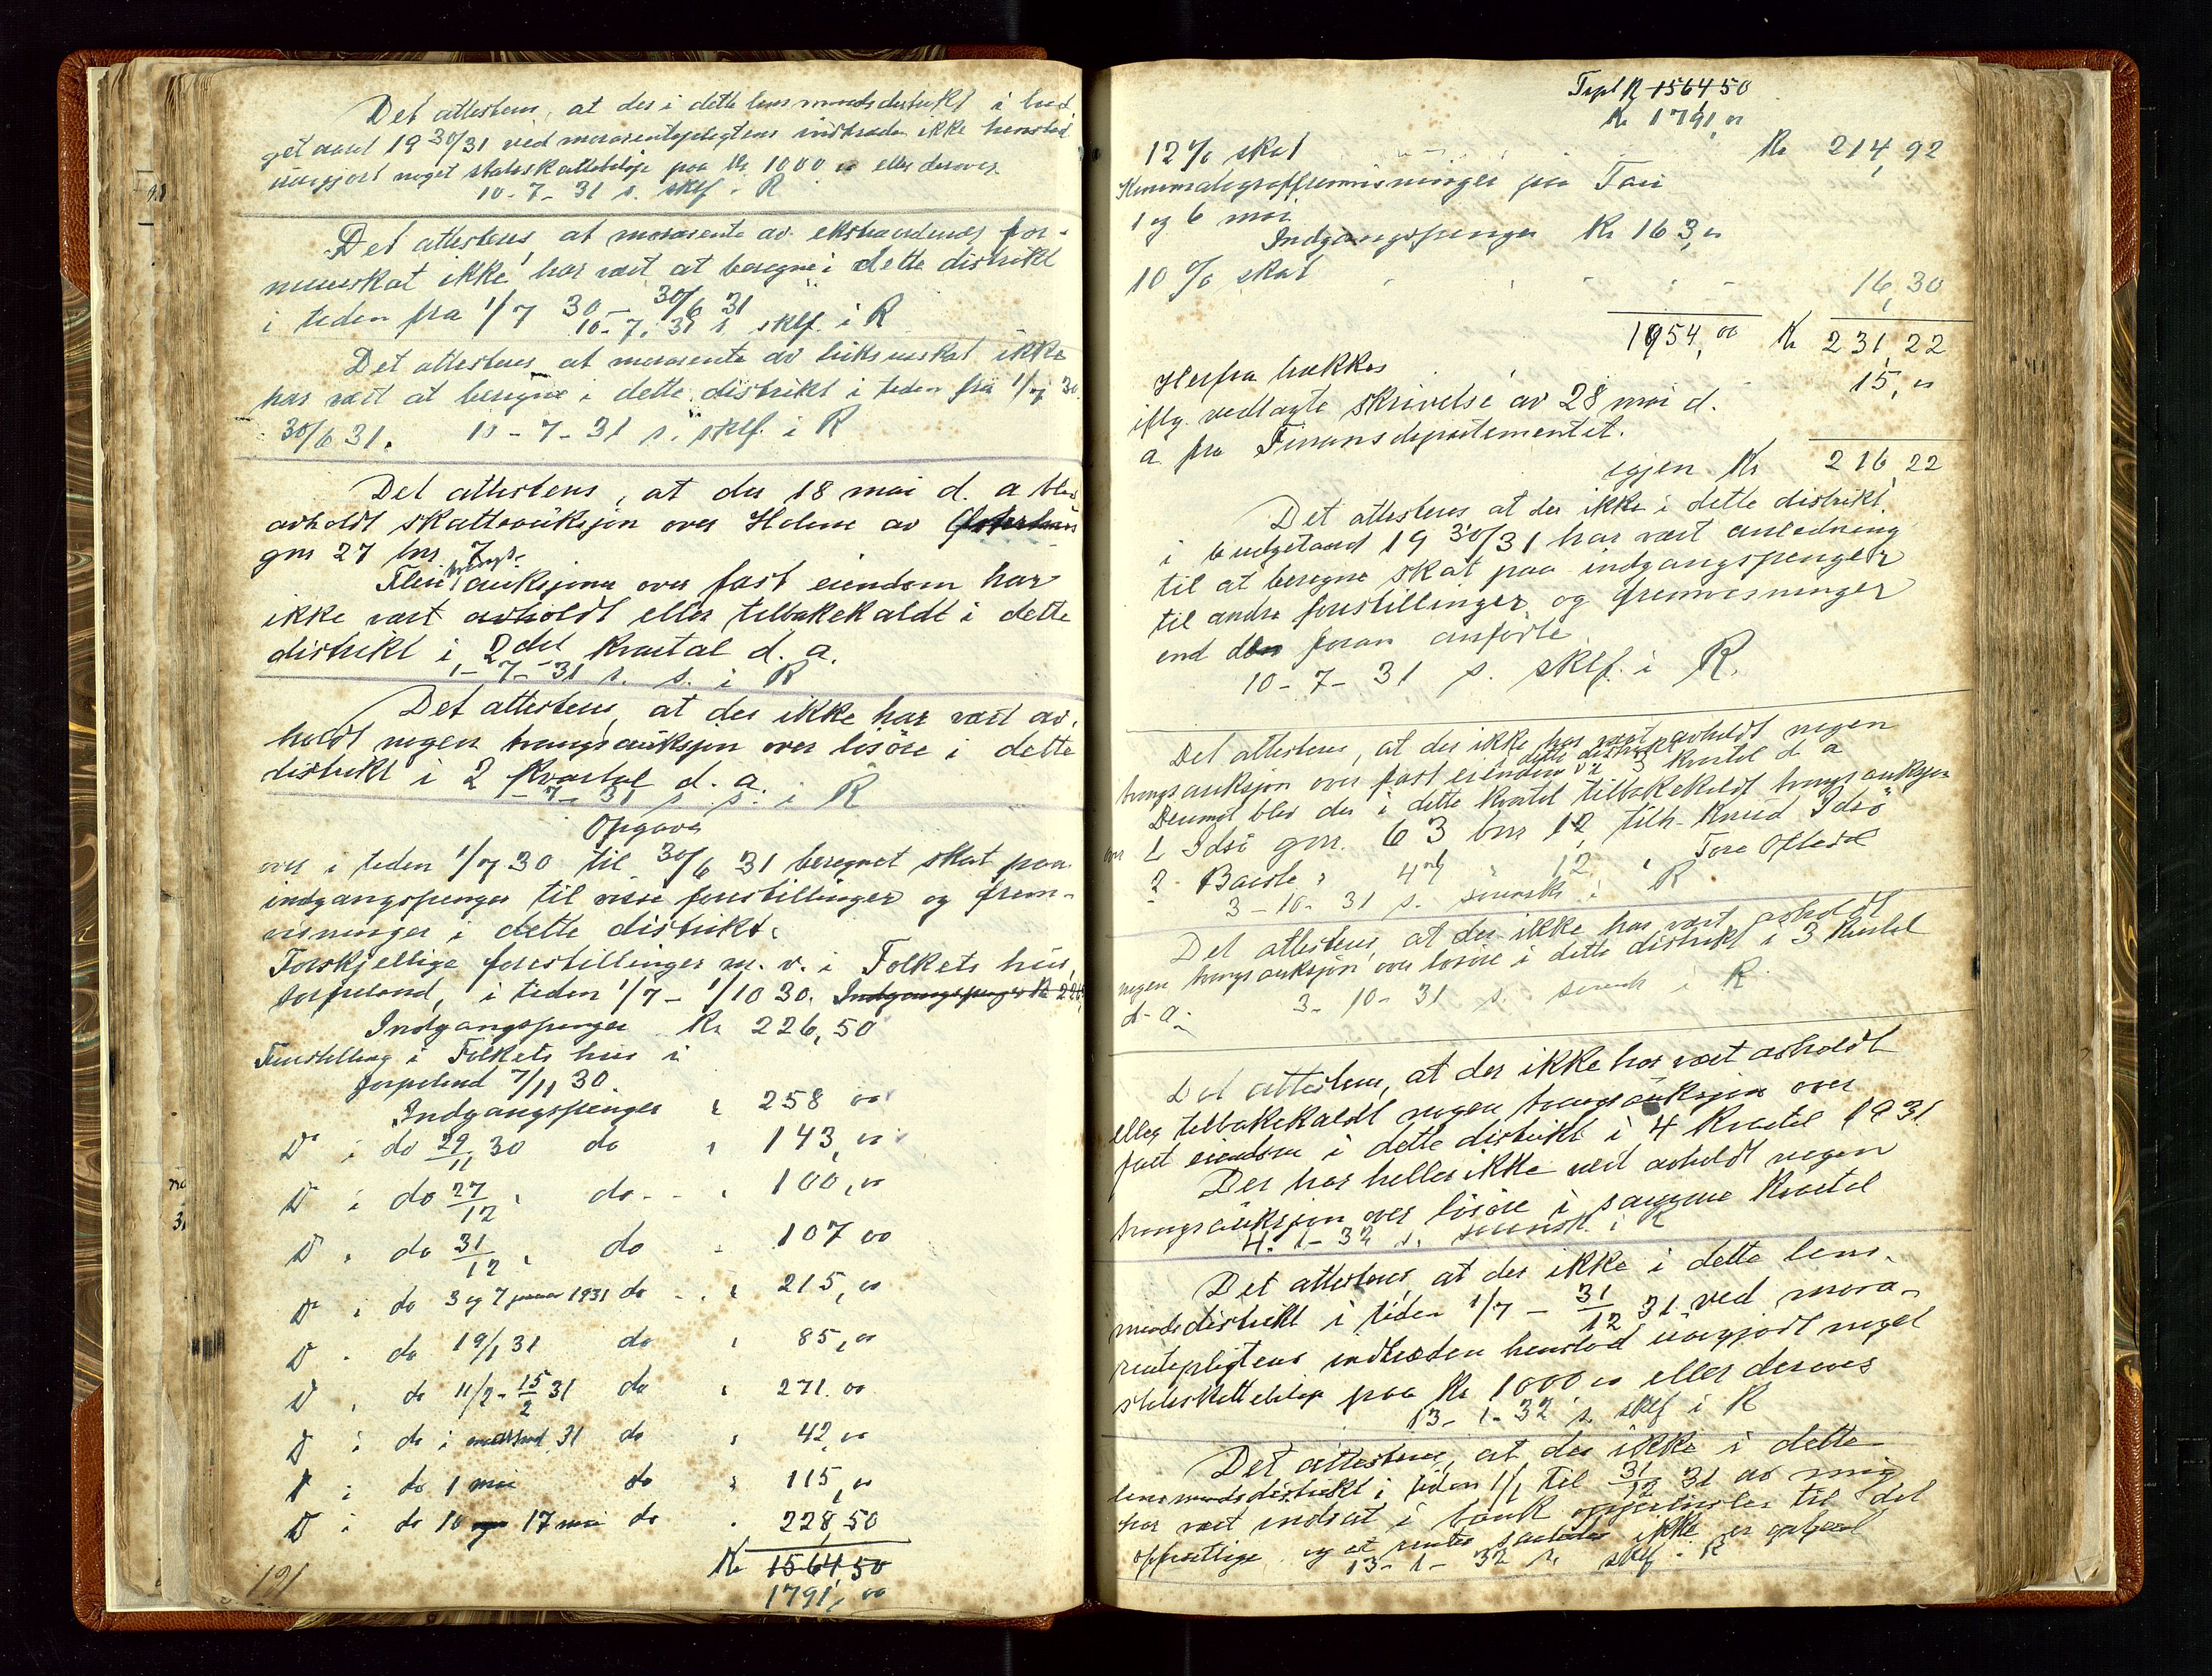 Det attesteres, at der i dette lensmandsdistrikt i bud
get aaret 19 30/31 ved morarentepligtens indtræden ikke henstod
uavgjort noget statsskattebeløp paa kr 1000 00 eller derover.
10-7-31 s. sklf. i R
Det attesteres, at morarente av ekstraordenær for-
mueskat ikke har vært at beregne i dette distrikt
i tiden fra 1/7 30 – 30/6 31
10-7-31 s. sklf. i R
Det attesteres at morarente av luksusskat ikke
har vært at beregne i dette distrikt i tiden fra 1/7 30
30/6 31. 10-7-31 s. sklf. i R
Det attesteres, at der 18 mai d. a blev
avholdt skatteauksjon over Holene av
gnr 27 bnr 7
Flere tvangs- auksjoner over fast eiendom har
ikke vært avholdt eller tilbakekaldt i dette
distrikt i 2det kvartal d. a.
1-7-31 s. s. i R
Det attesteres, at der ikke har vært av-
holdt nogen tvangsauksjon over løsøre i dette
distrikt i 2 kvartal d. a.
-7-31 s. s. i R
Opgave
over i tiden 1/7 30 til 30/6 31 beregnet skat paa
indgangspenger til visse forestillinger og frem-
visninger i dette distrikt.
Forskjellige forestillinger m. v. i Folkets hus,
Jørpeland, i tiden 1/7 – 1/10 30. Indgangspenger kr 226
Indgangspenger Kr 226,50
Forestilling i Folkets hus i
Jørpeland 7/11 30.
Indgangspenger " 258 00
Do i do 29/11 30 do " 143,00
Do i do 27/12 " do - - " 100,00
Do " do 31/12 " do - 107 00
Do i do 3 og 7 januar 1931 do - - " 215,00
D " do 19/1 31 do " 85,00
D " do 11/2 - 15/2 31 do " 271.00
D i do i 31 do " 42,00
D i do 1 mai do " 115,00
D i do 10 og 17 mai do " 228,50
Kr 1564,50
1791,00
191
Trpt Kr 156450
Kr 1791,00
12% skat Kr 214,92
Kinematograffremvisninger paa Tau
1 og 6 mai
Indgangspenger Kr 163,00
10% skat 16,30
1954,00 Kr 231,22
Herfra trækkes 15,00
iflg. vedlagte skrivelse av 28 mai d.
a. fra Finansdepartementet.
igjen Kr 216,22
Det attesteres at der ikke i dette distrikt
i budgetaaret 19 30/31 har vært anledning
til at beregne skat paa indgangspenger
til andre forestillinger og fremvisninger
end den foran anførte.
10-7-31 s. sklf. i R.
Det attesteres, at der ikke har vært avholdt nogen
tvangsauksjon over fast eiendom i dette distrikt i 3 kvartal d a
Derimot blev der i dette kvartal tilbakekaldt tvangsauksjon
over 1 Idsø gnr. 63 bnr 12, tilh. Knud Idsø
2 Barste " 47 " 12 " Tore Oftedal
3-10-31 s. i R
Det attesteres, at der ikke har vært avholdt
nogen tvangsauksjon over løsøre i dette distrikt i 3 kvartal
d. a. 3-10-31 s. i R.
Det attesteres, at der ikke har vært avholdt
eller tilbakekaldt nogen tvangsauksjon over
fast eiendom i dette distrikt i 4 kvartal 1931
Der har heller ikke vært avholdt nogen
tvangsauksjon over løsøre i samme kvartal
4-1-32 s. i R
Det attesteres, at der ikke i dette lens-
mandsdistrikt i tiden 1/7 – 31/12 31 ved mora-
rentepligtens indtræden henstod uavgjort noget
statsskattebeløp paa Kr 1000,00 eller derover
13-1-32 s. sklf i R
Det attesteres, at der ikke i dette
lensmandsdistrikt i tiden 1/1 til 31/12 31 av mig
har vært indsat i bank til det
offentlige og at renter saaledes ikke er optjent
13-1-32 s. sklf. i R